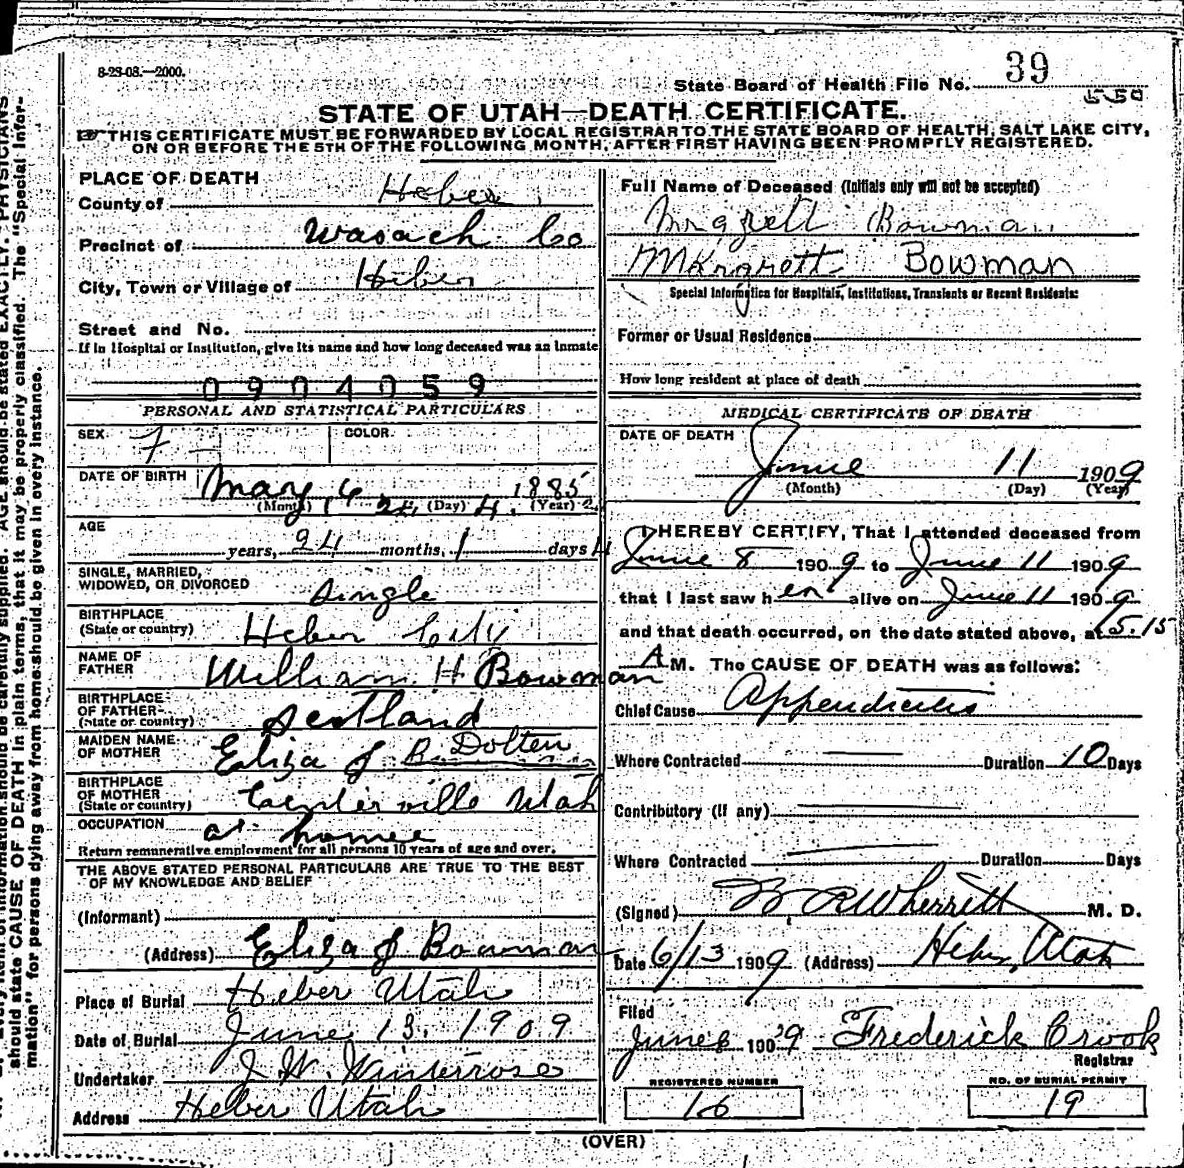 8-23-08.—2000.
State Board of Health File No. 39
550
STATE OF UTAH—DEATH CERTIFICATE.
THIS CERTIFICATE MUST BE FORWARDED BY LOCAL REGISTRAR TO THE STATE BOARD OF HEALTH, SALT LAKE CITY,
ON OR BEFORE THE 5TH OF THE FOLLOWING MONTH, AFTER FIRST HAVING BEEN PROMPTLY REGISTERED.
PLACE OF DEATH
County of Heber
Precinct of Wasach Co
City, Town or Village of Heber
Street and No.
If in Hospital or Institution, give its name and how long deceased was an inmate
0904059
PERSONAL AND STATISTICAL PARTICULARS
SEX F COLOR
DATE OF BIRTH May 1885
(Month) (Day) (Year)
AGE
years, 24 months, 1 days 4
SINGLE, MARRIED,
WIDOWED, OR DIVORCED single
BIRTHPLACE
(State or country) Heber City
NAME OF
FATHER William H Bowman
BIRTHPLACE
OF FATHER
(State or country) Scotland
MAIDEN NAME
OF MOTHER Eliza J B. Dolten
BIRTHPLACE
OF MOTHER
(State or country) Centerville Utah
OCCUPATION at home
Return remunerative employment for all persons 10 years of age and over.
THE ABOVE STATED PERSONAL PARTICULARS ARE TRUE TO THE BEST
OF MY KNOWLEDGE AND BELIEF
(Informant)
(Address) Eliza J Bowman
Place of Burial Heber Utah
Date of Burial June 13. 1909
Undertaker J. W. Winterrose
Address Heber Utah
Full Name of Deceased (Initials only will not be accepted)
Bowman
Margrett Bowman
Special Information for Hospitals, Institutions, Transients or Recent Residents:
Former or Usual Residence
How long resident at place of death
MEDICAL CERTIFICATE OF DEATH
DATE OF DEATH
June 11 1909
(Month) (Day) (Year)
I HEREBY CERTIFY, That I attended deceased from
June 8 1909 to June 11 1909
that I last saw her alive on June 11 1909
and that death occurred, on the date stated above, at 5.15
A M. The CAUSE OF DEATH was as follows:
Chief Cause Appendicitis
Where Contracted Duration 10 Days
Contributory (if any)
Where Contracted Duration Days
(Signed) W. R Wherritt M. D.
Date 6/13 1909 (Address) Heber, Utah
Filed
June 1909 Frederick Crook
Registrar
REGISTERED NUMBER
16
NO. OF BURIAL PERMIT
19
(OVER)
should state CAUSE OF DEATH in plain terms, that it may be properly classified. The "Special Infor-
mation" for persons dying away from home should be given in every instance.